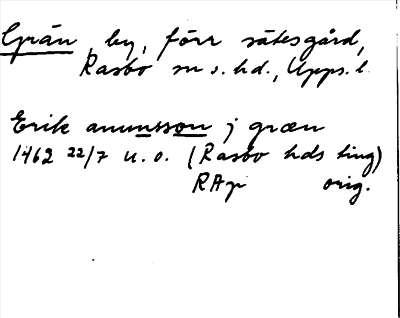 Grän, by, förr sätesgård,
Rasbo sn o. hd., Upps. l.
Erik anundsson j græn
1462 22/7 u. o. (Rasbo hds ting)
RAp orig.